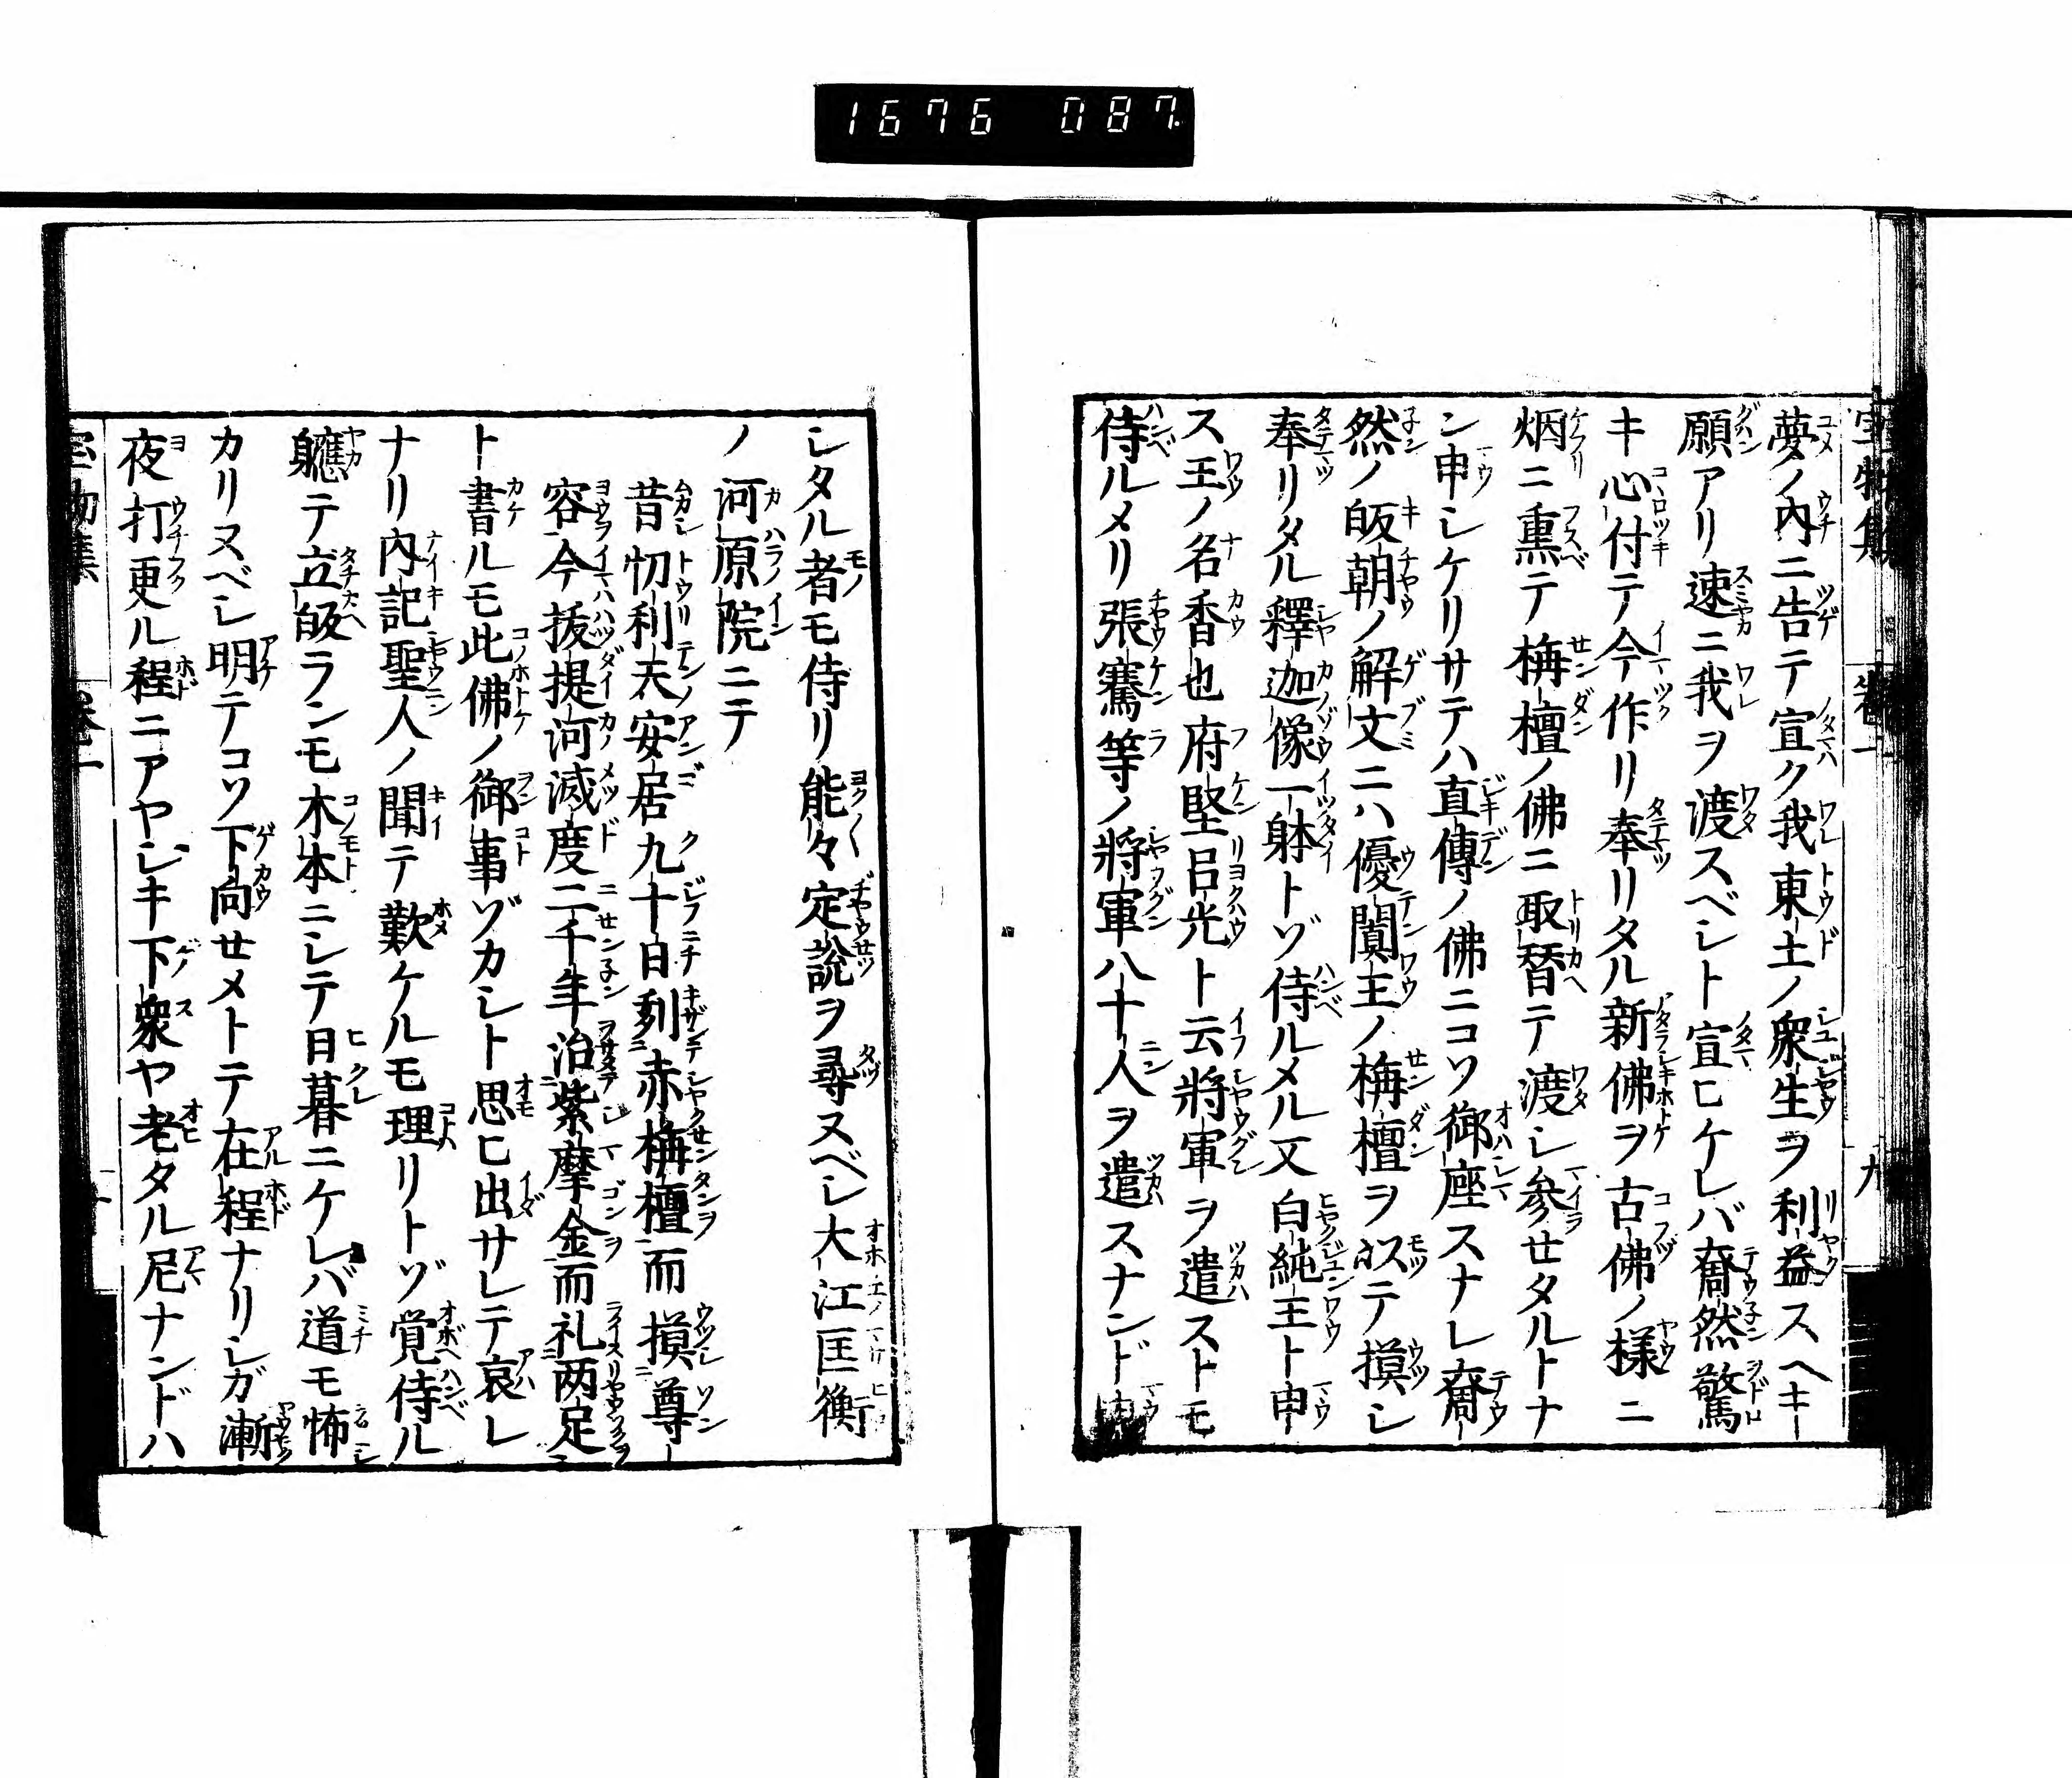 1676 087
夢ノ内ニ告テ宣ク我東土ノ衆生ヲ利益スヘキ
願アリ速ニ我ヲ渡スベシト宣ヒケレバ奝然驚
キ心付テ今作リ奉リタル新佛ヲ古佛ノ様ニ
烟ニ熏テ栴檀ノ佛ニ取替テ渡シ参セタルトナ
ン申シケリサテハ直傳ノ佛ニコソ御座スナレ奝
然ノ皈朝ノ解文ニハ優闐王ノ栴檀ヲ以テ摸シ
奉リタル釋迦像一躰トゾ侍ルメル又白純王ト申
ス王ノ名香也府堅呂光ト云將軍ヲ遣ストモ
侍ルメリ張騫等ノ將軍八十人ヲ遣スナンド申
シタル者モ侍リ能々定説ヲ尋ヌベシ大江匡衡
ノ河原院ニテ
昔忉利天安居九十日刻赤栴檀而摸尊
容今抜提河滅度二千年治紫摩金而礼两足
ト書ルモ此佛ノ御事ゾカシト思ヒ出サレテ哀レ
ナリ内記聖人ノ聞テ歎ケルモ理リトゾ覚侍ル
軈テ立皈ランモ木本ニシテ日暮ニケレバ道モ怖
カリヌベシ明テコソ下向セメトテ在程ナリシガ漸
夜打更ル程ニアヤシキ下衆ヤ老タル尼ナンドハ